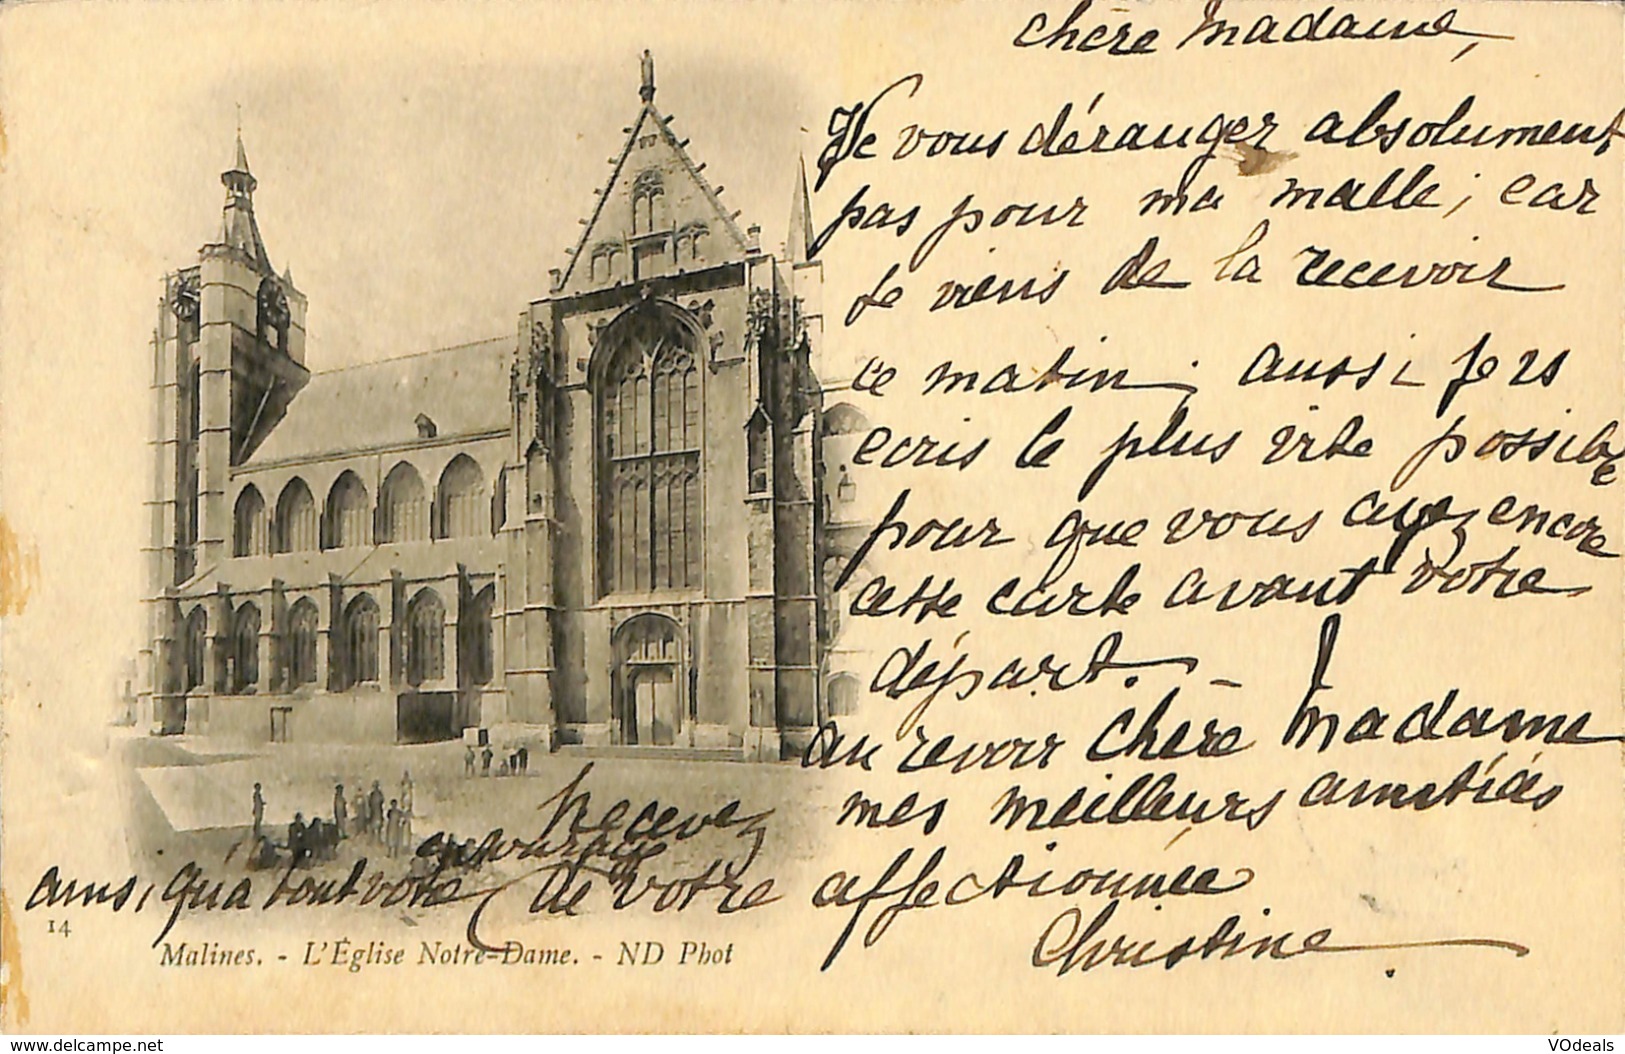 chère Madame,
Je vous déranger absolument
pas pour ma malle, car
Je viens de la recevoir
ce matin; aussi Je vs
ecris le plus vite possible
pour que vous ayez encore
cette carte avant votre
départ. —
au revoir chère Madame
Recevez mes meilleurs amitiés
ainsi qu'à tout votre
de votre affectionnée
Christine
14
Malines. - L'Église Notre-Dame. - ND Phot
www.delcampe.net
VOdeals